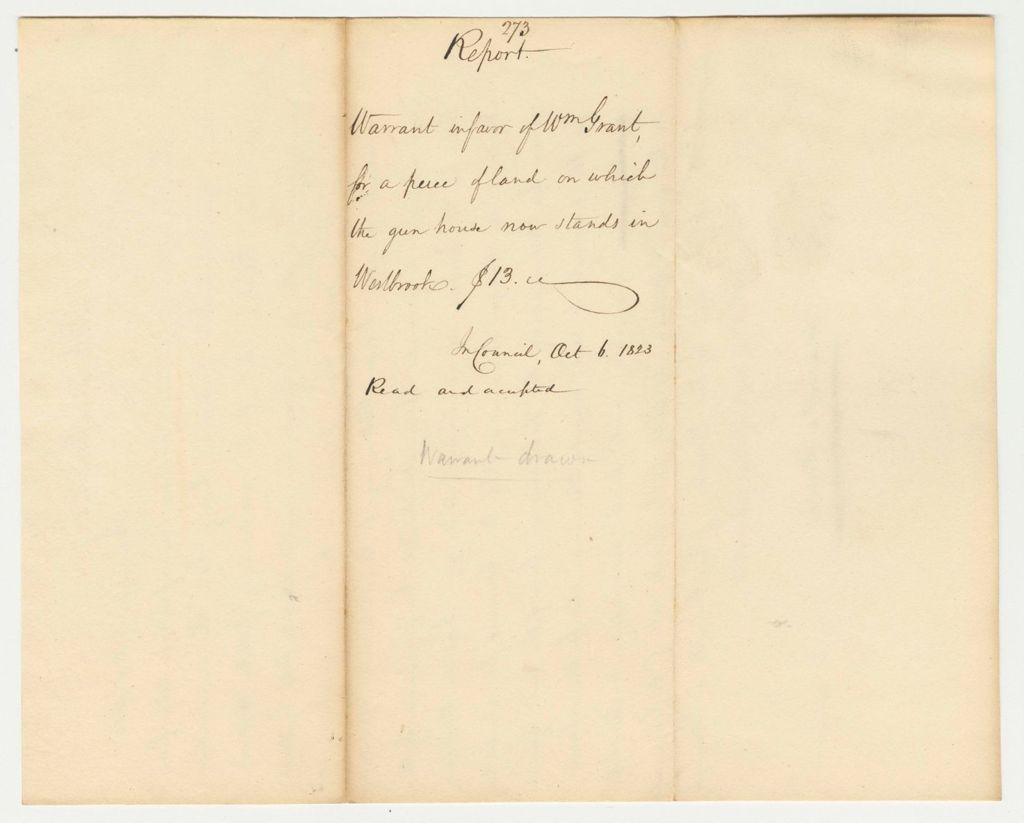 273
Report.
Warrant in favor of Wm Grant,
for a peice of land on which
the gun house now stands in
Westbrook. $13.
In Council, Oct 6. 1823
Read and accepted
Warrant drawn